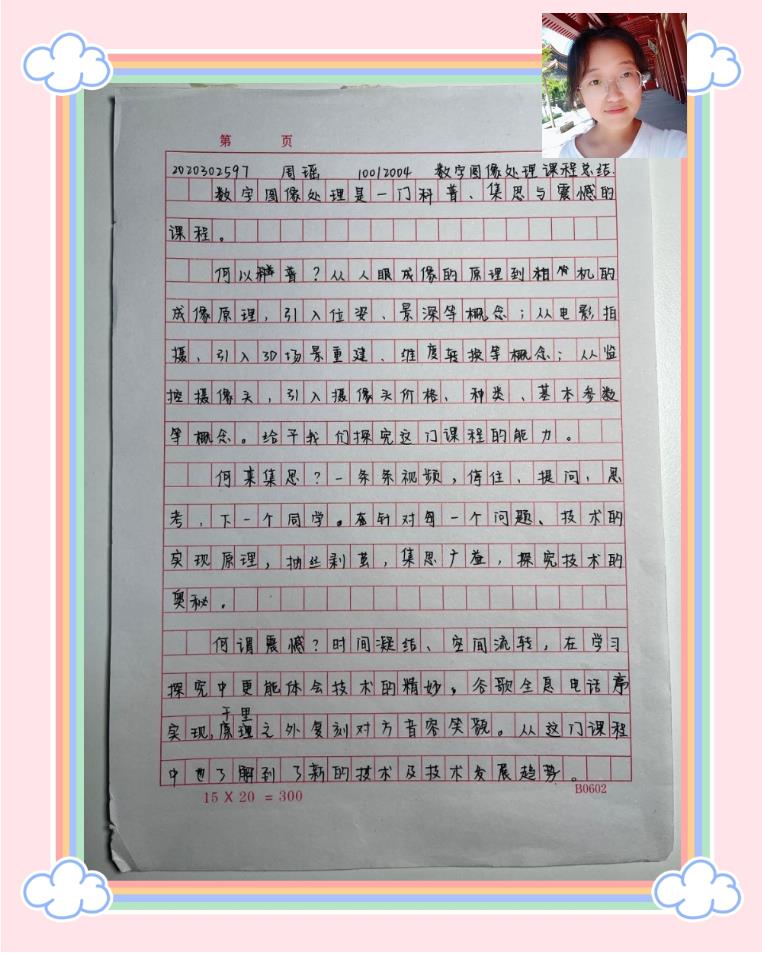 第 页
2020302597 周瑶 10012004 数字图像处理课程总结.
数字图像处理是一门科普、集思与震憾的
课程。
何以科普？从人眼成像的原理到相机的
成像原理，引入位姿、景深等概念；从电影拍
摄，引入3D场景重建、维度转换等概念；从监
控摄像头，引入摄像头价格、种类、基本参数
等概念。给予我们探究这门课程的能力。
何某集思？一条条视频，停住、提问，思
考，下一个同学。在针对每一个问题、技术的
实现原理，抽丝剥茧，集思广益，探究技术的
奥秘。
何谓震憾？时间凝结、空间流转，在学习
探究中更能体会技术的精妙。谷歌全息电话
千里
实现，原理之外复刻对方音容笑貌。从这门课程
中也了解到了新的技术及技术发展趋势。
15 X 20 = 300
B0602